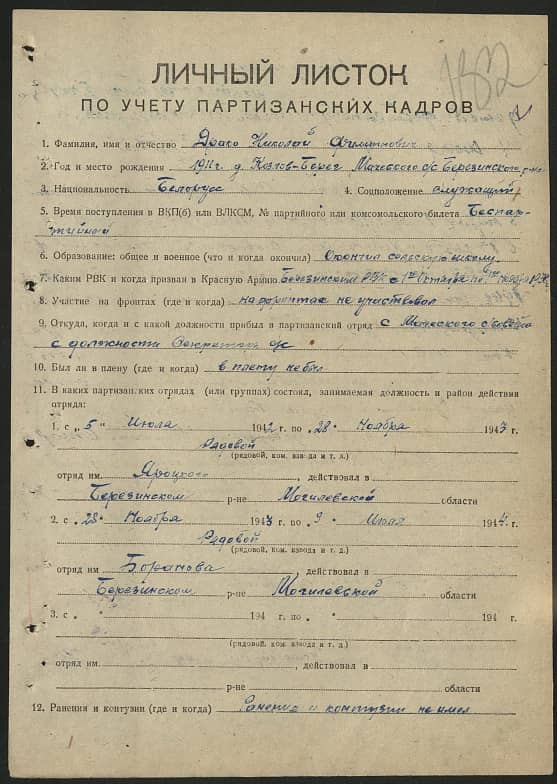 1382
ЛИЧНЫЙ ЛИСТОК
ПО УЧЕТУ ПАРТИЗАНСКИХ КАДРОВ
1. Фамилия, имя и отчество Драко Николай Филиппович
2. Год и место рождения 1911 г. д. Козлов-Берег Маческого с/с Березинского
3. Национальность Белорус 4. Соцположение служащий
5. Время поступления в ВКП(б) или ВЛКСМ, № партийного или комсомольского билета Беспар-
тийный
6. Образование: общее и военное (что и когда окончил) Окончил сельскую школу
7. Каким РВК и когда призван в Красную Армию Березинским РВК с 1го Октября по ноября
8. Участие на фронтах (где и когда) на фронтах не участвовал
9. Откуда, когда и с какой должности прибыл в партизанский отряд с Маческого с/совета
с должности Секретаря с/с
10. Был ли в плену (где и когда) в плену не был
11. В каких партизанских отрядах (или группах) состоял, занимаемая должность и район действия
отряда:
1. с „5“ Июля 1942 г. по „28“ Ноября 1943 г.
Рядовой
(рядовой, ком. взвода и т. д.)
отряд им. Яроцкого, действовал в
Березинском р-не Могилевской области
2. с „28“ Ноября 1943 г. по „9“ Июля 1944 г.
Рядовой
(рядовой, ком. взвода и т. д.)
отряд им Боранова, действовал в
Березинском р-не Могилевской области
3. с 194 г. по 194 г.
(рядовой, ком. взвода и т. д.)
отряд им. , действовал в
р-не области
12. Ранения и контузии (где и когда) Ранения и контузии не имел